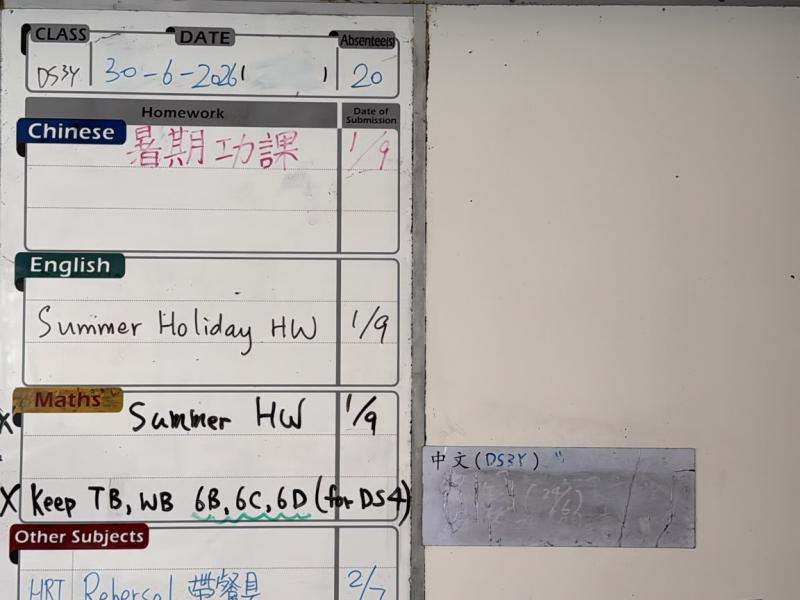 CLASS DATE Absentee(s)
DS3Y 30-6-2026 20
Homework Date of Submission
Chinese 暑期功課 1/9
English
Summer Holiday HW 1/9
Maths Summer HW 1/9
X Keep TB, WB 6B, 6C, 6D (for DS4)
Other Subjects
HRT Rehersal 帶餐具 2/7
中文(DS3Y)
(29/6)